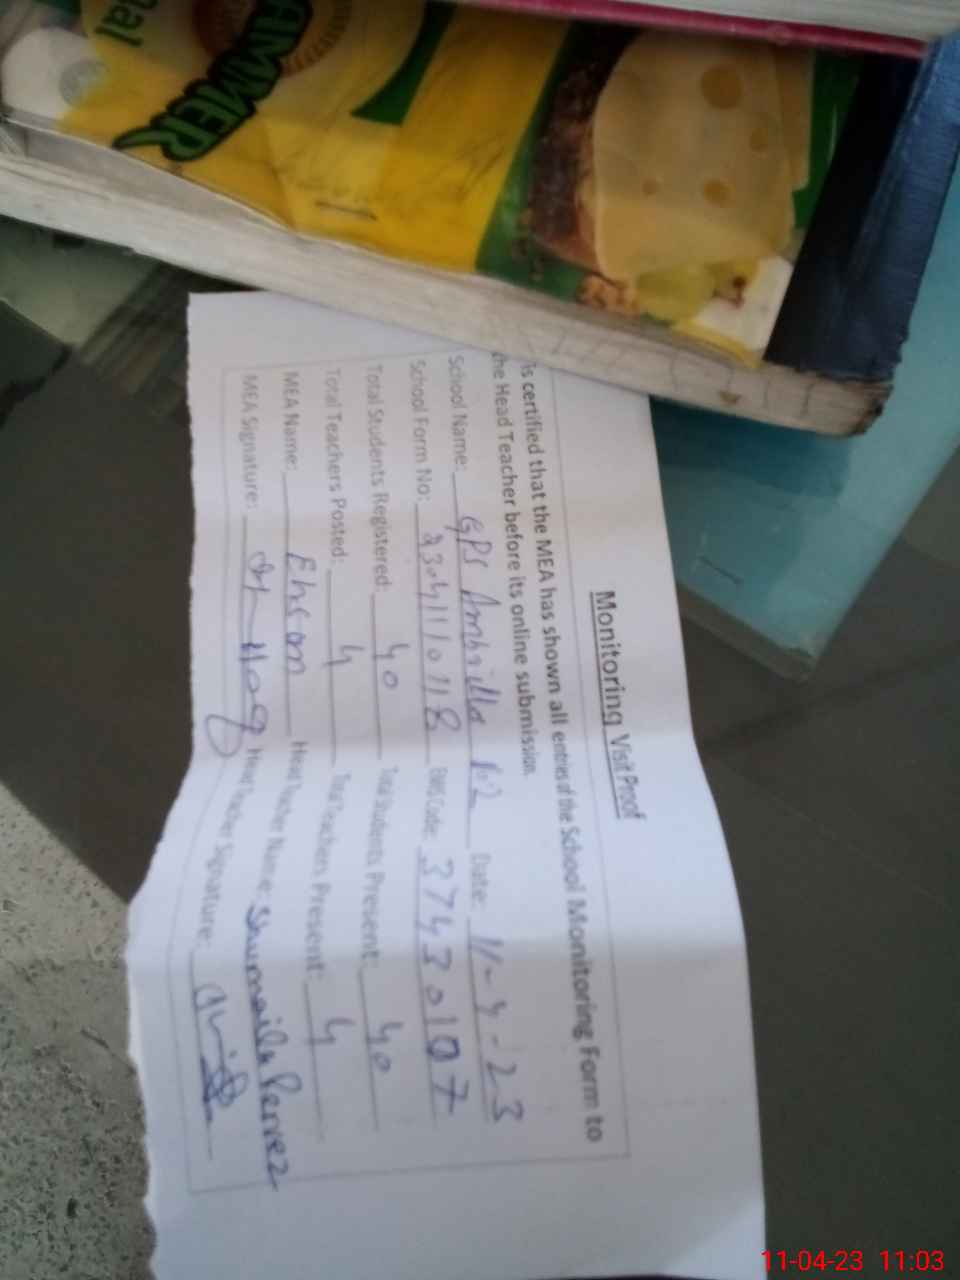 Monitoring Visit Proof
is certified that the MEA has shown all entries of the School Monitoring Form to
the Head Teacher before its online submission.
School Name: GPS Ambrilla No.2 Date: 11-4-23
School Form No: EMIS Code: 37430107
Total Students Registered: 40 Total Students Present: 40
Total Teachers Posted: 4 Total Teachers Present: 4
MEA Name: Ehsan Head Teacher Name: Shumaila Pervez
MEA Signature: Head Teacher Signature:
11-04-23 11:03